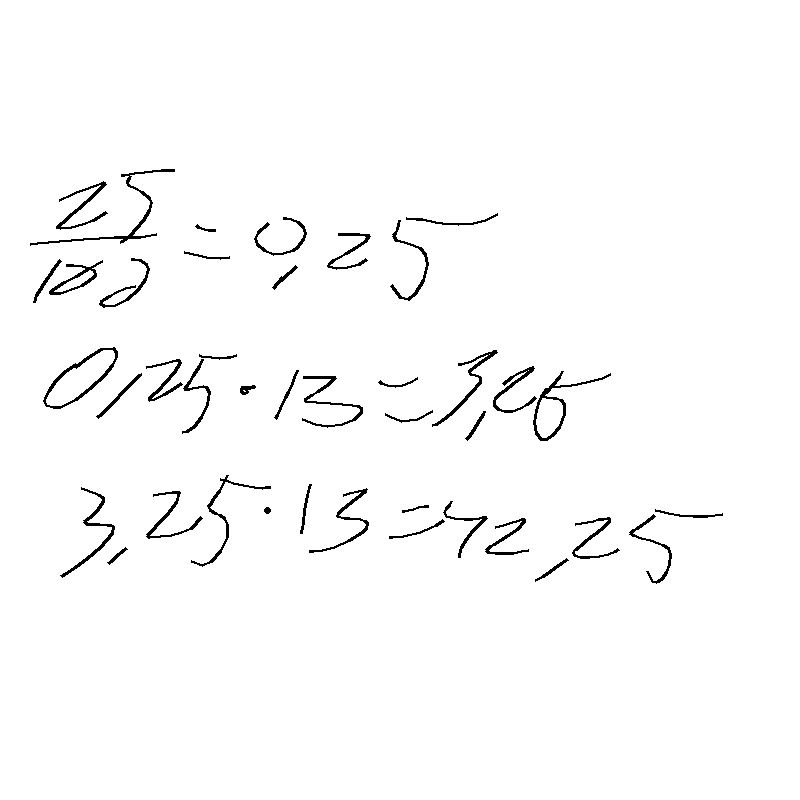 25/100 = 0,25
0,25 · 13 = 3,25
3,25 · 13 = 42,25